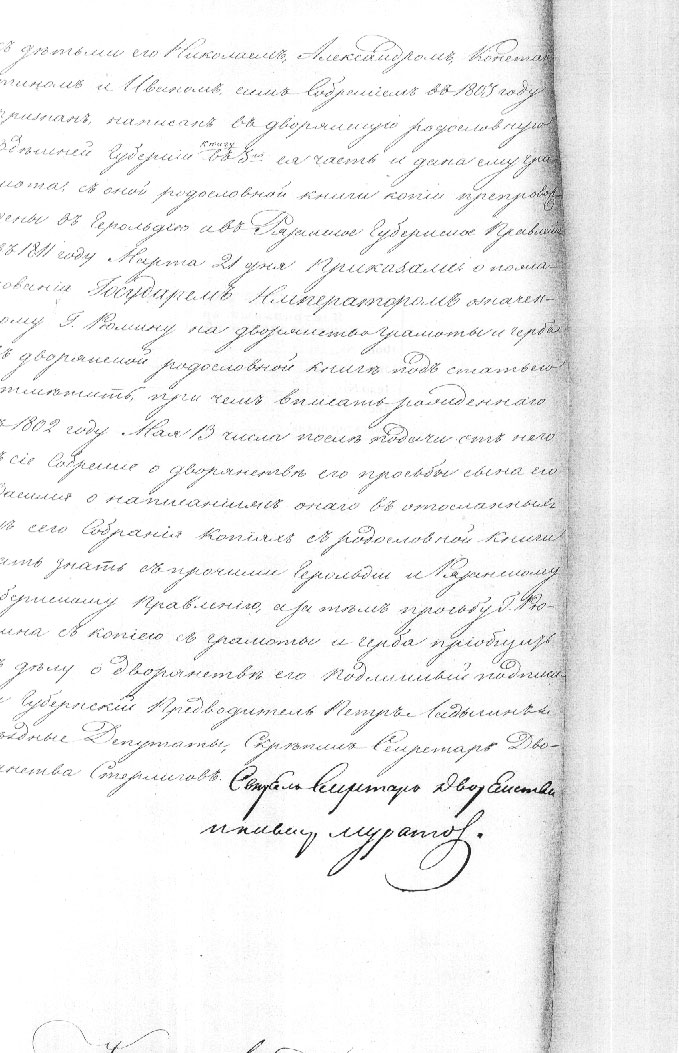 съ дѣтьми его Николаемъ, Александромъ, Констан-
тиномъ и Иваномъ, симъ Собраніемъ въ 1803 году
признанъ, написанъ въ дворянскую родословную
Губерніи книгу въ 3ю ея часть и дана ему гра-
мота; съ оной родословной книги копіи препровож-
дены въ Герольдію и въ Рязанское Губернское Правленіе
въ 1811 году Марта 21 дня Приказали: о пожа-
лованіи Государемъ Императоромъ означен-
ному Г. Рюмину на дворянство грамоты и герба
въ дворянской родословной книгѣ подъ статьею
отмѣтить, при чемъ вписать рожденнаго
въ 1802 году Мая 13 числа послѣ подачи отъ него
въ сіе Собраніе о дворянствѣ его прозьбы сына его
Василия о написаніи онаго въ отосланныхъ
изъ сего Собранія Копіяхъ съ родословной книги
дать знать съ прочими Герольдіи и Рязанскому
Губернскому Правленію, а за тѣмъ прозьбу Г. Рю-
мина съ копіею съ грамоты и герба пріобщить
къ дѣлу о дворянствѣ его. Подлинный подписа-
ли Губернскій Предводитель Петръ
Уѣздные Депутаты, Скрѣпилъ Секретарь Дво-
рянства Стерлиговъ.
Скрѣпилъ Секретарь Дворянства
Муратовъ.